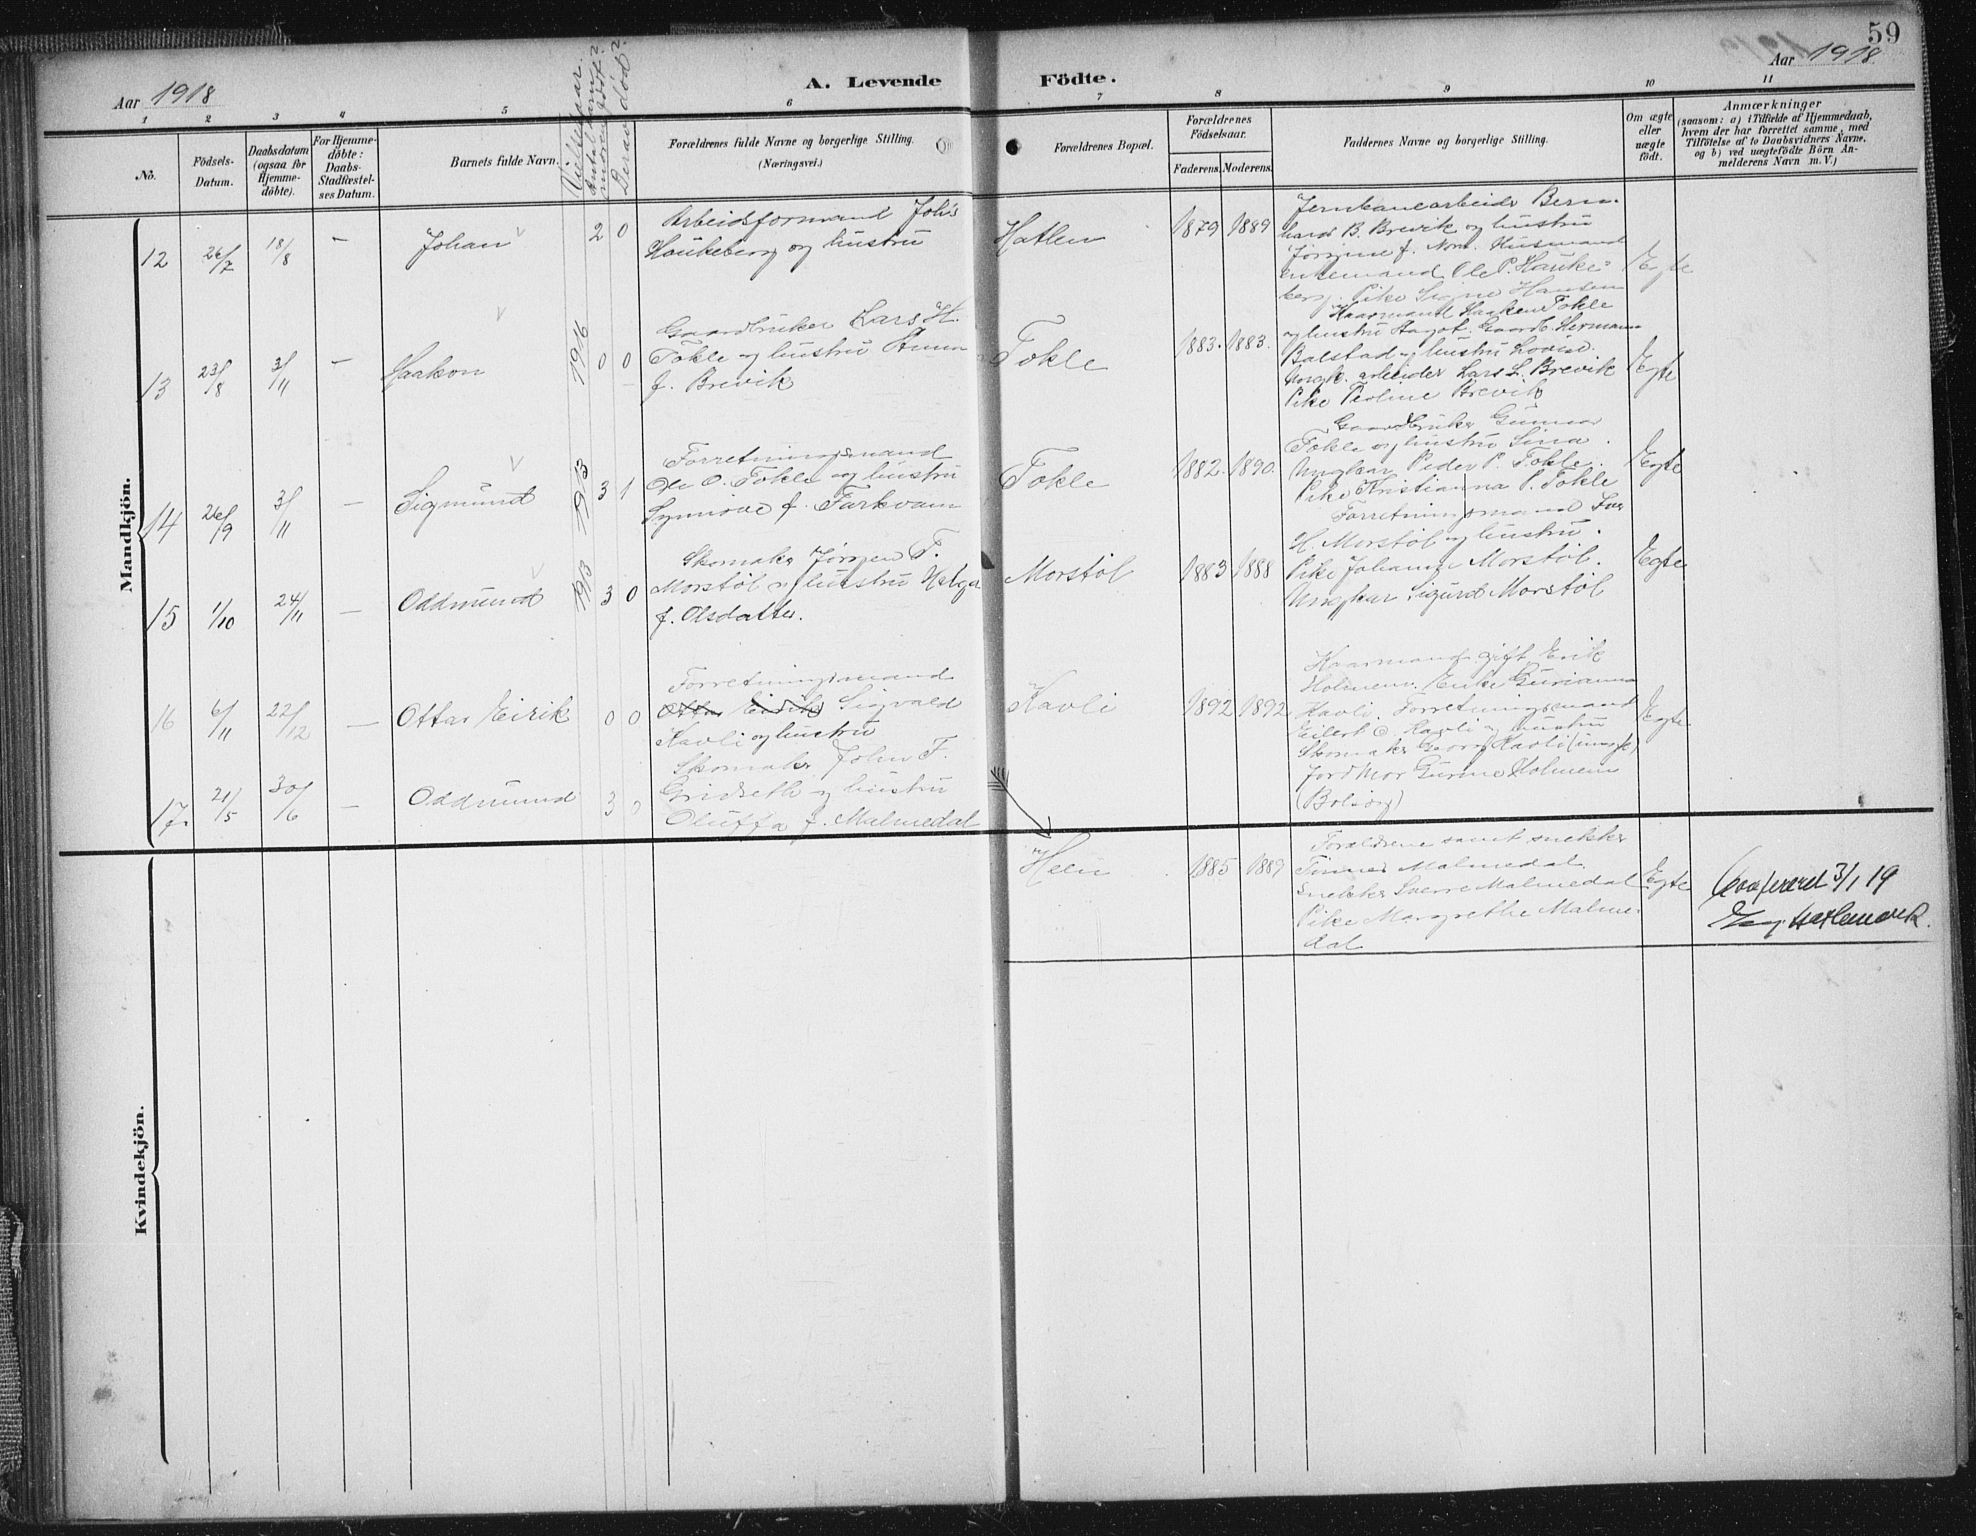 59
Aar 1918
A. Levende Födte.
Aar 1918
1 2 3 4 5 6 7 8 9 10 11
No.
Födsels-
Datum.
Daabsdatum
(ogsaa for
Hjemme-
döbte).
For Hjemme-
döbte:
Daabs-
Stadfæstel-
ses Datum.
Barnets fulde Navn.
Vielsesaar.
Antal barn
moren födt?
Derav död?
Forældrenes fulde Navne og borgerlige Stilling.
(Næringsvei.)
Forældrenes Bopæl.
Forældrenes
Födselsaar.
Faderens. Moderens.
Faddernes Navne og borgerlige Stilling.
Om ægte
eller
uægte
födt.
Anmærkninger
(saasom: a) i Tilfælde af Hjemmedaab,
hvem der har forrettet samme, med
Tilföielse af to Daabsvidners Navne,
og b) ved uægtefödte Börn An-
melderens Navn m. V.)
Mandkjön.
12 26/7 18/8 — Johan 2 0
Arbeidsformand Joh's
Haukeberg og hustru
Hatlen 1879 1889
Jernbanearbeider Bern-
hard B. Brevik og hustru
Jørgine f. Nora. Husmand
enkemand Ole P. Hauke-
berg. Pike Signe Hansen
Egte
13 23/8 3/11 — Haakon 1916 0 0
Gaardbruker Lars H.
Tokle og hustru Anna
f. Brevik
Tokle 1883. 1883.
Kaarmand Haaken Tokle
og hustru Hagot. Gaardb. Hermann
Balstad og hustru Lovise.
Ungk. arbeider Lars L. Brevik
Pike Peoline Brevik
Egte
14 26/9 3/11 — Sigmund 1913 3 1
Forretningsmand
Ole O. Tokle og hustru
Synnöve f. Farkvam
Tokle 1882. 1890.
Gaardbruker Gunnar
Tokle og hustru Sina.
Ungkar Peder P. Tokle.
Pike Kristianna P. Tokle
Egte
15 1/10 24/11 — Oddmund 1913 3 0
Skomaker Jørgen T.
Morstøl og hustru Helga
f. Olsdatter.
Morstöl 1883 1888
Forretningsmand Iver
H. Morstöl og hustru.
Pike Johanna Morstöl.
Ungkar Sigurd Morstöl
Egte
16 6/11 22/12 — Ottar Eirik 0 0
Forretningsmand
Ottar Eirik Sigvald
Kavli og hustru
Kavli 1892 1892
Kaarmand gift Erik
Holmem. Enke Gurianna
Kavli. Forretningsmand
Eilert O Kavli og hustru
Skomaker Georg Kavli (ungk)
Jordmor Gurine Holmem
(Bolsöy)
Egte
17. 21/5 30/6 — Oddmund 3 0
Skomaker John T.
Gridseth og hustru
Oluffa f. Malmedal
Heen 1885 1889
Forældrene samt snekker
Tinnes Malmedal.
Snekker Sverre Malmedal
Pike Margrethe Malme-
dal
Egte
Confereret 3/1 19
Kvindekjön.